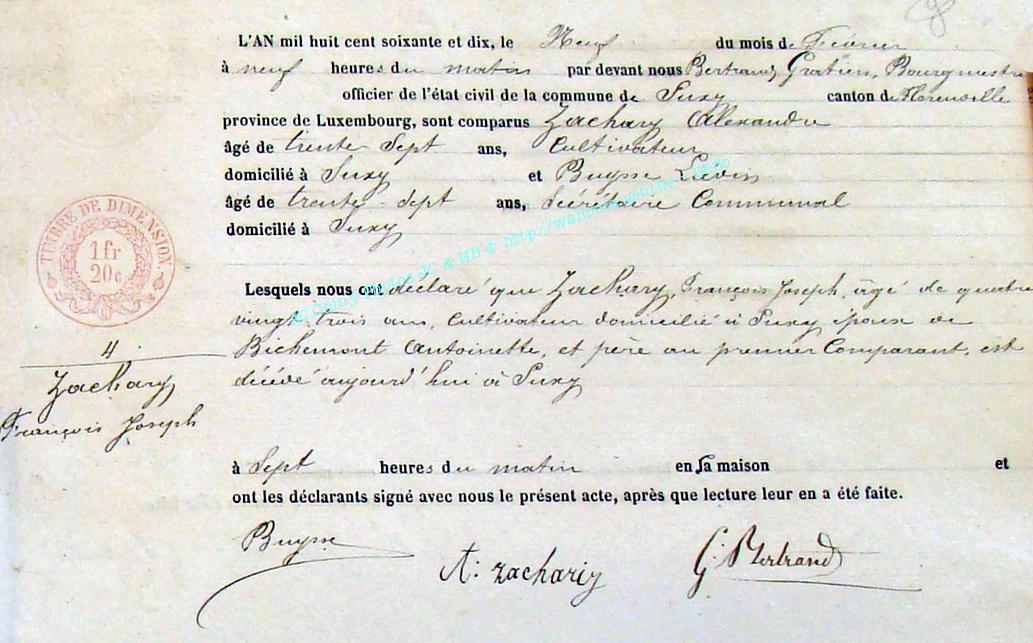 L'AN mil huit cent soixante et dix, le Neuf du mois de Février
à neuf heures du matin par devant nous Bertrand, Gratien, Bourgmestre
officier de l'état civil de la commune de Suxy canton de Florenville
province de Luxembourg, sont comparus Zachary Alexandre
âgé de trente-Sept ans, Cultivateur
domicilié à Suxy et Buysse Liévin
âgé de trente-Sept ans, Sécrétaire Communal
domicilié à Suxy
TIMBRE DE DIMENSION.
1 fr
20 c
Lesquels nous ont déclaré que Zachary, François Joseph, âgé de quatre
vingt-trois ans, cultivateur domicilié à Suxy époux de
Bichemont Antoinette, et père au premier Comparant, est
décédé aujourd'hui à Suxy
4.
Zachary
François Joseph
à Sept heures du matin en sa maison et
ont les déclarants signé avec nous le présent acte, après que lecture leur en a été faite.
Buysse
A: Zachariy
G: Bertrand